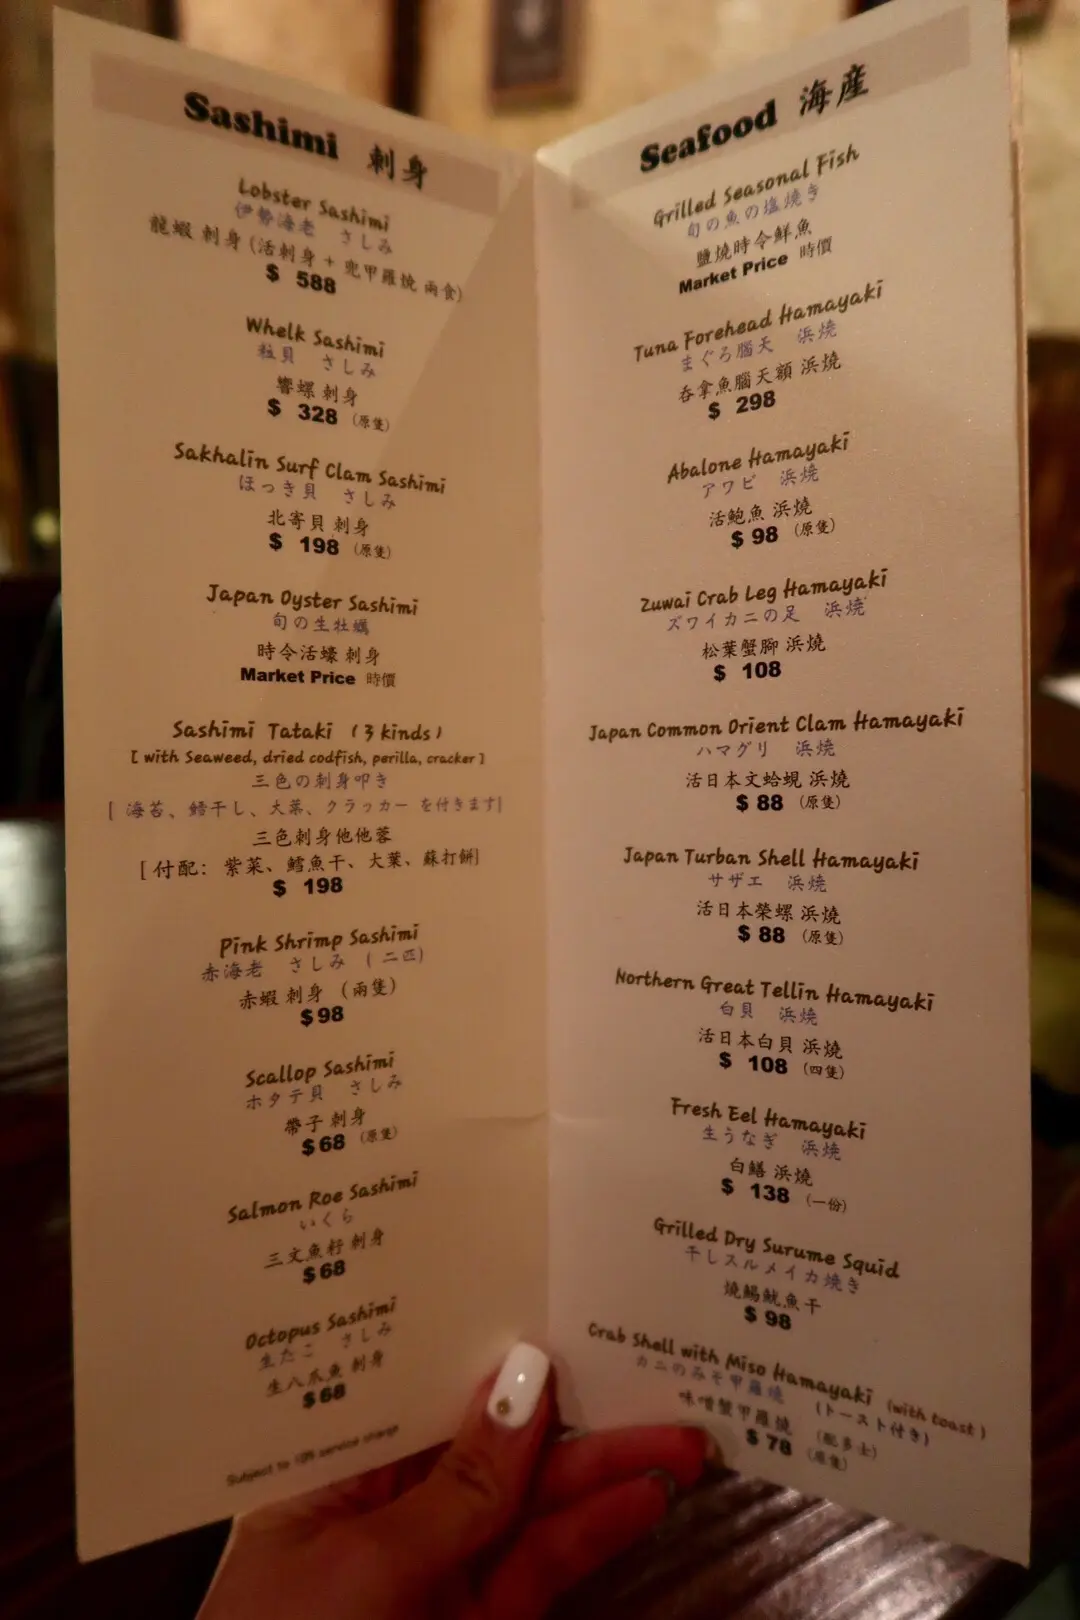 Sashimi 刺身
Lobster Sashimi
伊勢海老 さしみ
龍蝦 刺身 (活刺身 + 兜甲羅燒 兩食)
$ 588
Whelk Sashimi
粒貝 さしみ
響螺 刺身
$ 328 (原隻)
Sakhalin Surf Clam Sashimi
ほっき貝 さしみ
北寄貝 刺身
$ 198 (原隻)
Japan Oyster Sashimi
旬の生牡蠣
時令活蠔 刺身
Market Price 時價
Sashimi Tataki (3 kinds)
[ with Seaweed, dried codfish, perilla, cracker ]
三色の刺身叩き
[ 海苔、鱈干し、大葉、クラッカー を付きます]
三色刺身他他蓉
[ 付配: 紫菜、鱈魚干、大葉、蘇打餅]
$ 198
Pink Shrimp Sashimi
赤海老 さしみ (二匹)
赤蝦 刺身 (兩隻)
$98
Scallop Sashimi
ホタテ貝 さしみ
帶子 刺身
$68 (原隻)
Salmon Roe Sashimi
いくら
三文魚籽 刺身
$68
Octopus Sashimi
生たこ さしみ
生八爪魚 刺身
$68
Subject to 10% service charge
Seafood 海産
Grilled Seasonal Fish
旬の魚の塩焼き
鹽燒時令鮮魚
Market Price 時價
Tuna Forehead Hamayaki
まぐろ腦天 浜焼
吞拿魚腦天額 浜燒
$ 298
Abalone Hamayaki
アワビ 浜焼
活鮑魚 浜燒
$ 98 (原隻)
Zuwai Crab Leg Hamayaki
ズワイカニの足 浜焼
松葉蟹腳 浜燒
$ 108
Japan Common Orient Clam Hamayaki
ハマグリ 浜焼
活日本文蛤蜆 浜燒
$ 88 (原隻)
Japan Turban Shell Hamayaki
サザエ 浜焼
活日本榮螺 浜燒
$ 88 (原隻)
Northern Great Tellin Hamayaki
白貝 浜焼
活日本白貝 浜燒
$ 108 (四隻)
Fresh Eel Hamayaki
生うなぎ 浜焼
白鱔 浜燒
$ 138 (一份)
Grilled Dry Surume Squid
干しスルメイカ焼き
燒鰑魷魚干
$ 98
Crab Shell with Miso Hamayaki (with toast)
カニのみそ甲羅焼 (トースト付き)
味噌蟹甲羅燒 (配多士)
$ 78 (原隻)